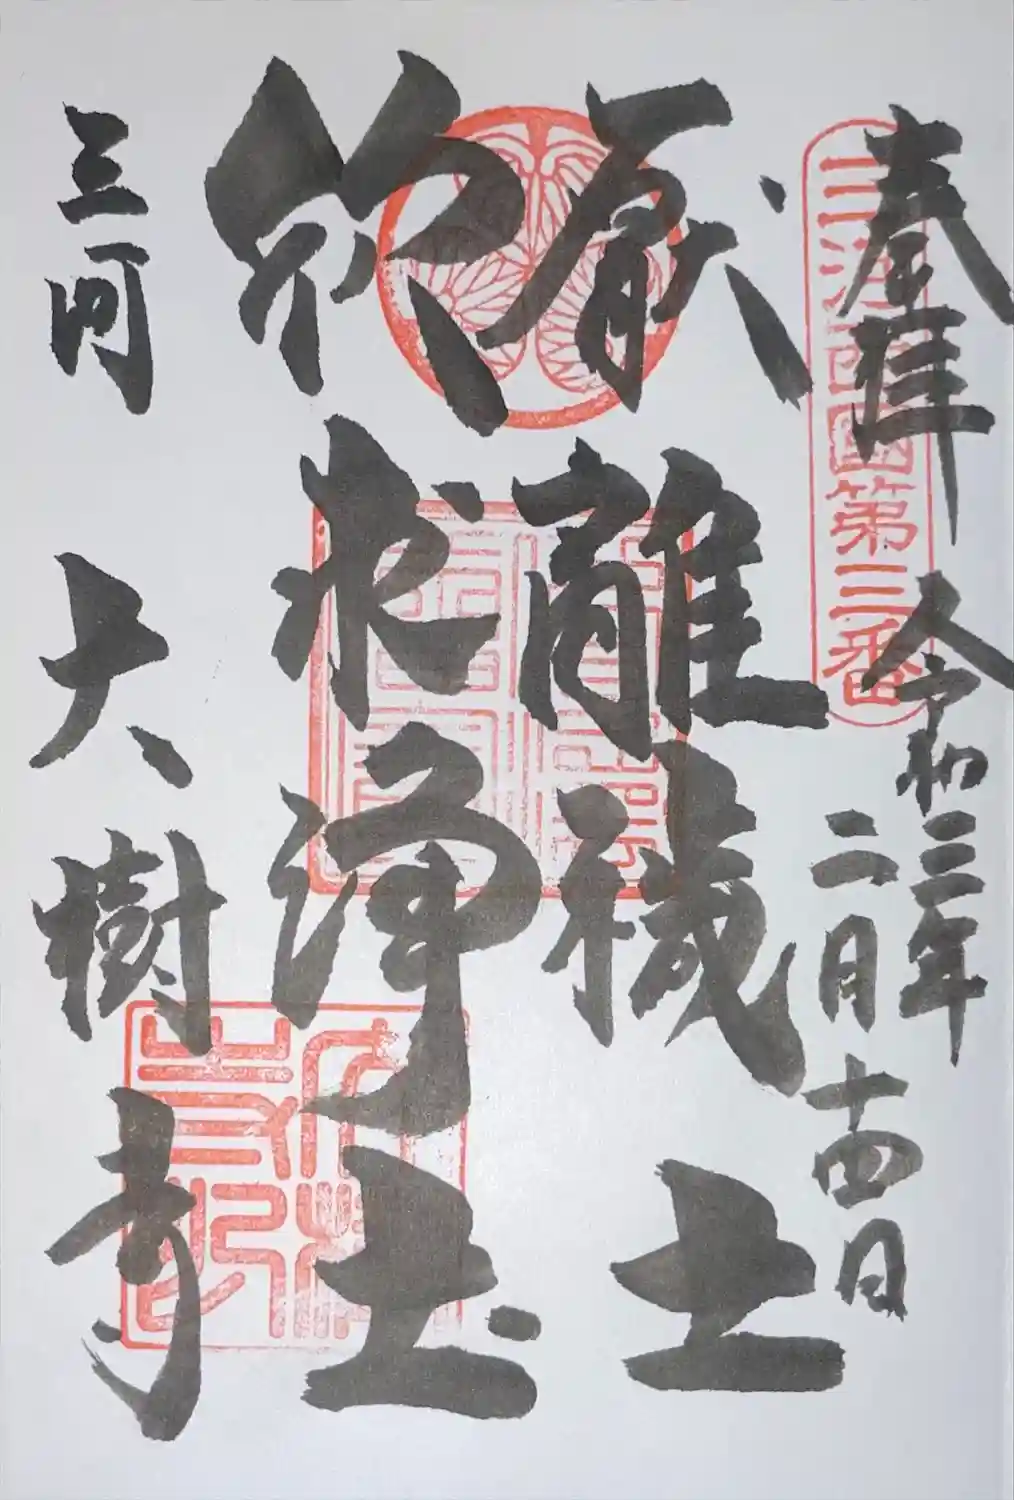 奉拝
三河西國第三番
令和三年
二月十四日
厭離穢土
欣求浄土
三河 大樹寺